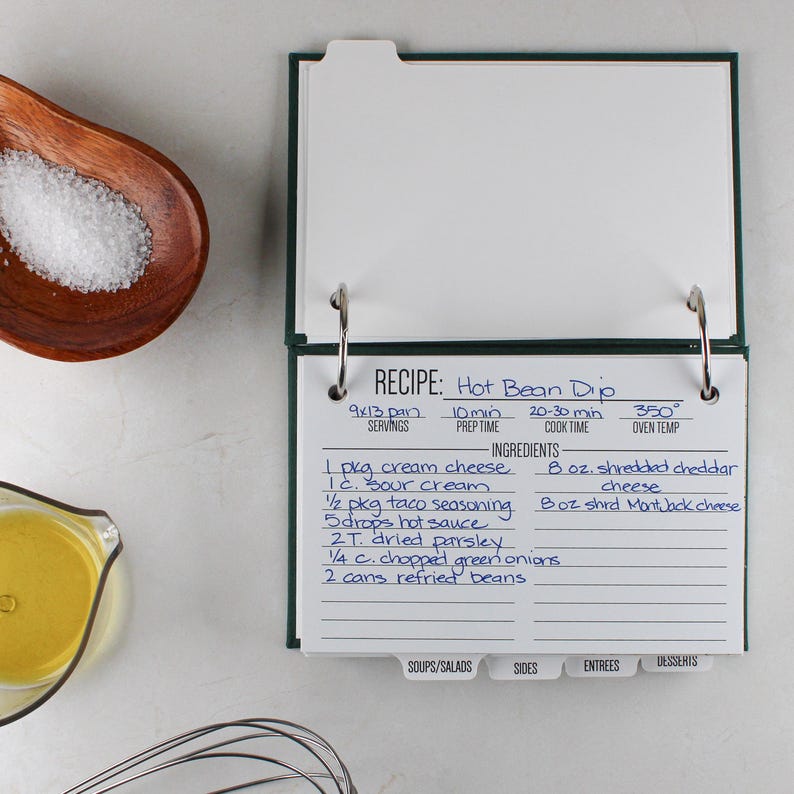 RECIPE: Hot Bean Dip
9x13 pan 10 min 20-30 min 350°
SERVINGS PREP TIME COOK TIME OVEN TEMP
INGREDIENTS
1 pkg cream cheese
1 c. sour cream
1/2 pkg taco seasoning
5 drops hot sauce
2 T. dried parsley
1/4 c. chopped green onions
2 cans refried beans
8 oz. shredded cheddar
cheese
8 oz shrd Mont Jack cheese
SOUPS/SALADS SIDES ENTREES DESSERTS